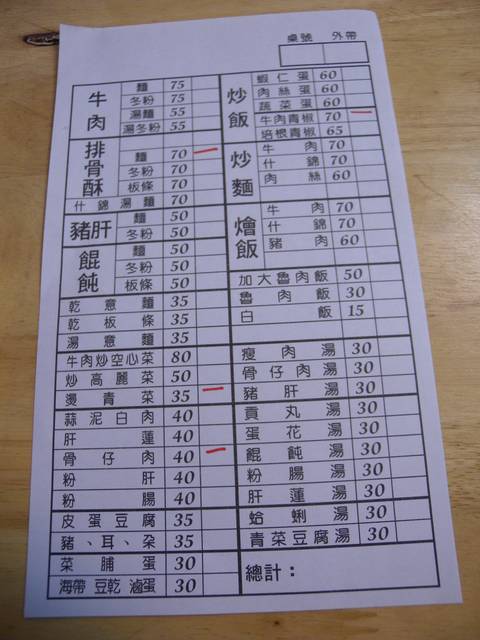 桌號 外帶
牛肉
麵 75
冬粉 75
湯麵 55
湯冬粉 55
排骨酥
麵 70
冬粉 70
板條 70
什錦湯麵 70
豬肝
麵 50
冬粉 50
餛飩
麵 50
冬粉 50
板條 50
乾意麵 35
乾板條 35
湯意麵 35
牛肉炒空心菜 80
炒高麗菜 50
燙青菜 35
蒜泥白肉 40
肝蓮 40
骨仔肉 40
粉肝 40
粉腸 40
皮蛋豆腐 35
豬、耳、朶 35
菜脯蛋 30
海帶 豆乾 滷蛋 30
炒飯
蝦仁蛋 60
肉絲蛋 60
蔬菜蛋 60
牛肉青椒 70
培根青椒 65
炒麵
牛肉 70
什錦 70
肉絲 60
燴飯
牛肉 70
什錦 70
豬肉 60
加大魯肉飯 50
魯肉飯 30
白飯 15
瘦肉湯 30
骨仔肉湯 30
豬肝湯 30
貢丸湯 30
蛋花湯 30
餛飩湯 30
粉腸湯 30
肝蓮湯 30
蛤蜊湯 30
青菜豆腐湯 30
總計：